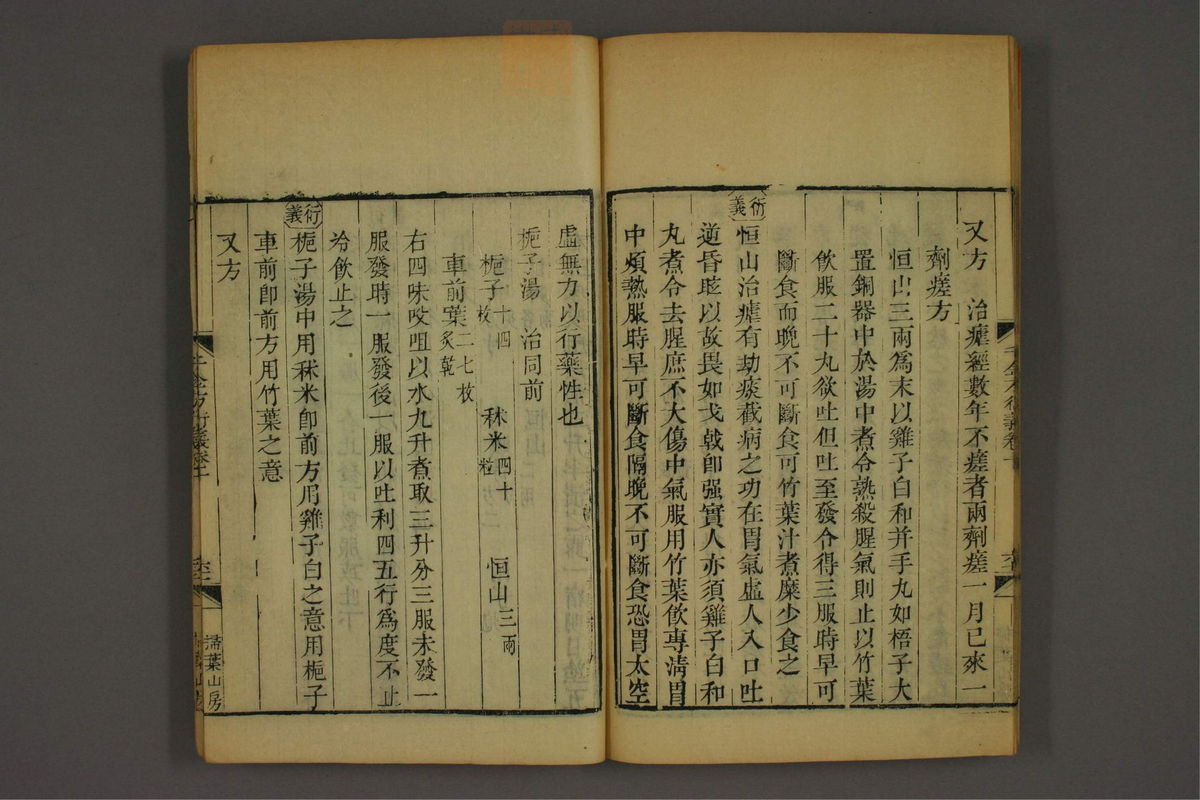 又方 治瘧經數年不瘥者兩劑瘥一月已來一
劑瘥方
恒山三兩爲末以雞子白和并手丸如梧子大
置銅器中於湯中煮令熟殺腥氣則止以竹葉
飲服二十丸欲吐但吐至發令得三服時早可
斷食而晚不可斷食可竹葉汁煮糜少食之
衍義
恒山治瘧有劫痰截病之功在胃氣虛人入口吐
逆昏眩以故畏如戈戟卽强實人亦須雞子白和
丸煮令去腥庶不大傷中氣服用竹葉飲專淸胃
中煩熱服時早可斷食隔晚不可斷食恐胃太空
虛無力以行藥性也
梔子湯 治同前
梔子十四枚 秫米四十粒 恒山三兩
車前葉二七枚炙乾
右四味㕮咀以水九升煮取三升分三服未發一
服發時一服發後一服以吐利四五行爲度不止
冷飲止之
衍義
梔子湯中用秫米卽前方用雞子白之意用梔子
車前卽前方用竹葉之意
又方
千金方衍義卷十
掃葉山房